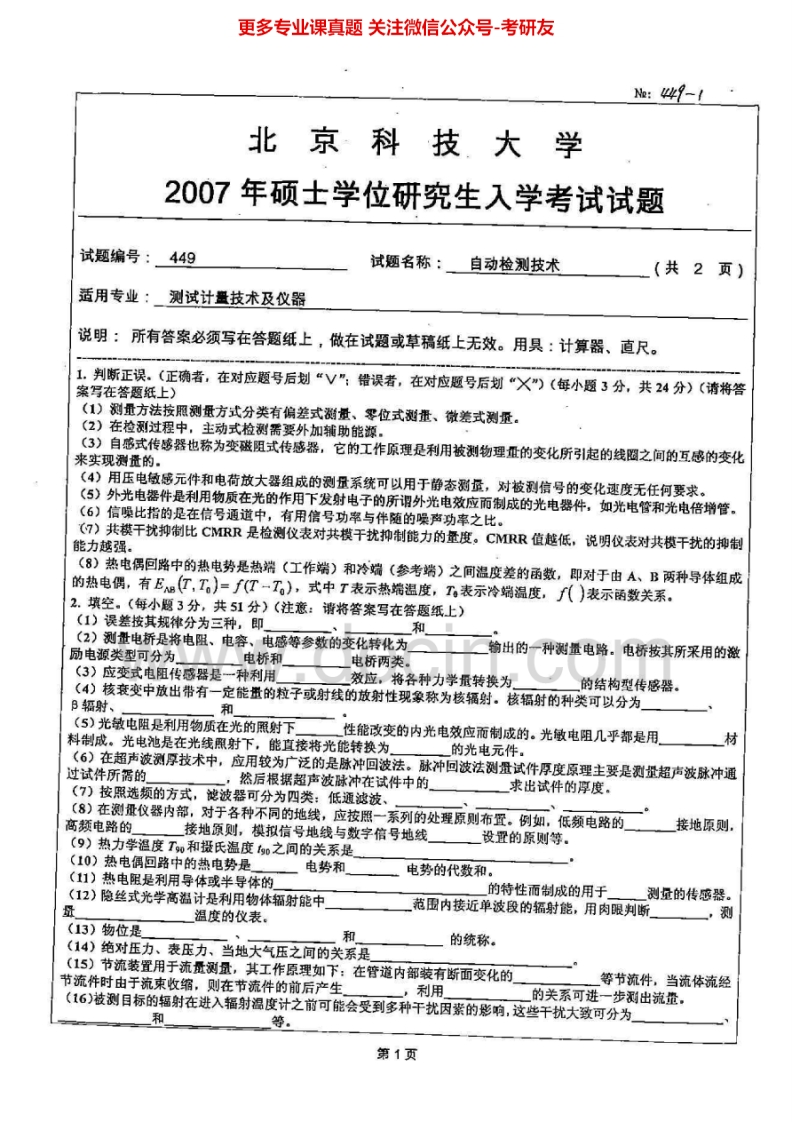 更多专业课真题 关注微信公众号-考研友
№: 449-1
北 京 科 技 大 学
2007 年硕士学位研究生入学考试试题
试题编号： 449 试题名称： 自动检测技术 （共 2 页）
适用专业： 测试计量技术及仪器
说明： 所有答案必须写在答题纸上，做在试题或草稿纸上无效。用具：计算器、直尺。
1. 判断正误。（正确者，在对应题号后划“∨”；错误者，在对应题号后划“╳”）（每小题 3 分，共 24 分）（请将答
案写在答题纸上）
（1）测量方法按照测量方式分类有偏差式测量、零位式测量、微差式测量。
（2）在检测过程中，主动式检测需要外加辅助能源。
（3）自感式传感器也称为变磁阻式传感器，它的工作原理是利用被测物理量的变化所引起的线圈之间的互感的变化
来实现测量的。
（4）用压电敏感元件和电荷放大器组成的测量系统可以用于静态测量，对被测信号的变化速度无任何要求。
（5）外光电器件是利用物质在光的作用下发射电子的所谓外光电效应而制成的光电器件，如光电管和光电倍增管。
（6）信噪比指的是在信号通道中，有用信号功率与伴随的噪声功率之比。
（7）共模干扰抑制比 CMRR 是检测仪表对共模干扰抑制能力的量度。CMRR 值越低，说明仪表对共模干扰的抑制
能力越强。
（8）热电偶回路中的热电势是热端（工作端）和冷端（参考端）之间温度差的函数，即对于由 A、B 两种导体组成
的热电偶，有 E_AB(T, T₀) = f(T − T₀)，式中 T 表示热端温度，T₀表示冷端温度，f( )表示函数关系。
2. 填空。（每小题 3 分，共 51 分）（注意：请将答案写在答题纸上）
（1）误差按其规律分为三种，即________、________和________。
（2）测量电桥是将电阻、电容、电感等参数的变化转化为________输出的一种测量电路。电桥按其所采用的激
励电源类型可分为________电桥和________电桥两类。
（3）应变式电阻传感器是一种利用________效应，将各种力学量转换为________的结构型传感器。
（4）核衰变中放出带有一定能量的粒子或射线的放射性现象称为核辐射。核辐射的种类可以分为________、
β辐射、________和________。
（5）光敏电阻是利用物质在光的照射下________性能改变的内光电效应而制成的。光敏电阻几乎都是用________材
料制成。光电池是在光线照射下，能直接将光能转换为________的光电元件。
（6）在超声波测厚技术中，应用较为广泛的是脉冲回波法。脉冲回波法测量试件厚度原理主要是测量超声波脉冲通
过试件所需的________，然后根据超声波脉冲在试件中的________求出试件的厚度。
（7）按照选频的方式，滤波器可分为四类：低通滤波、________、________、________。
（8）在测量仪器内部，对于各种不同的地线，应按照一系列的处理原则布置。例如，低频电路的________接地原则，
高频电路的________接地原则，模拟信号地线与数字信号地线________设置的原则等。
（9）热力学温度 T₉₀和摄氏温度 t₉₀之间的关系是________。
（10）热电偶回路中的热电势是________电势和________电势的代数和。
（11）热电阻是利用导体或半导体的________的特性而制成的用于________测量的传感器。
（12）隐丝式光学高温计是利用物体辐射能中________范围内接近单波段的辐射能，用肉眼判断________，测
量________温度的仪表。
（13）物位是________、________和________的统称。
（14）绝对压力、表压力、当地大气压之间的关系是________。
（15）节流装置用于流量测量，其工作原理如下：在管道内部装有断面变化的________等节流件，当流体流经
节流件时由于流束收缩，则在节流件的前后产生________，利用________的关系可进一步测出流量。
（16）被测目标的辐射在进入辐射温度计之前可能会受到多种干扰因素的影响，这些干扰大致可分为________、
________和________等。
www.docin.com
第 1 页